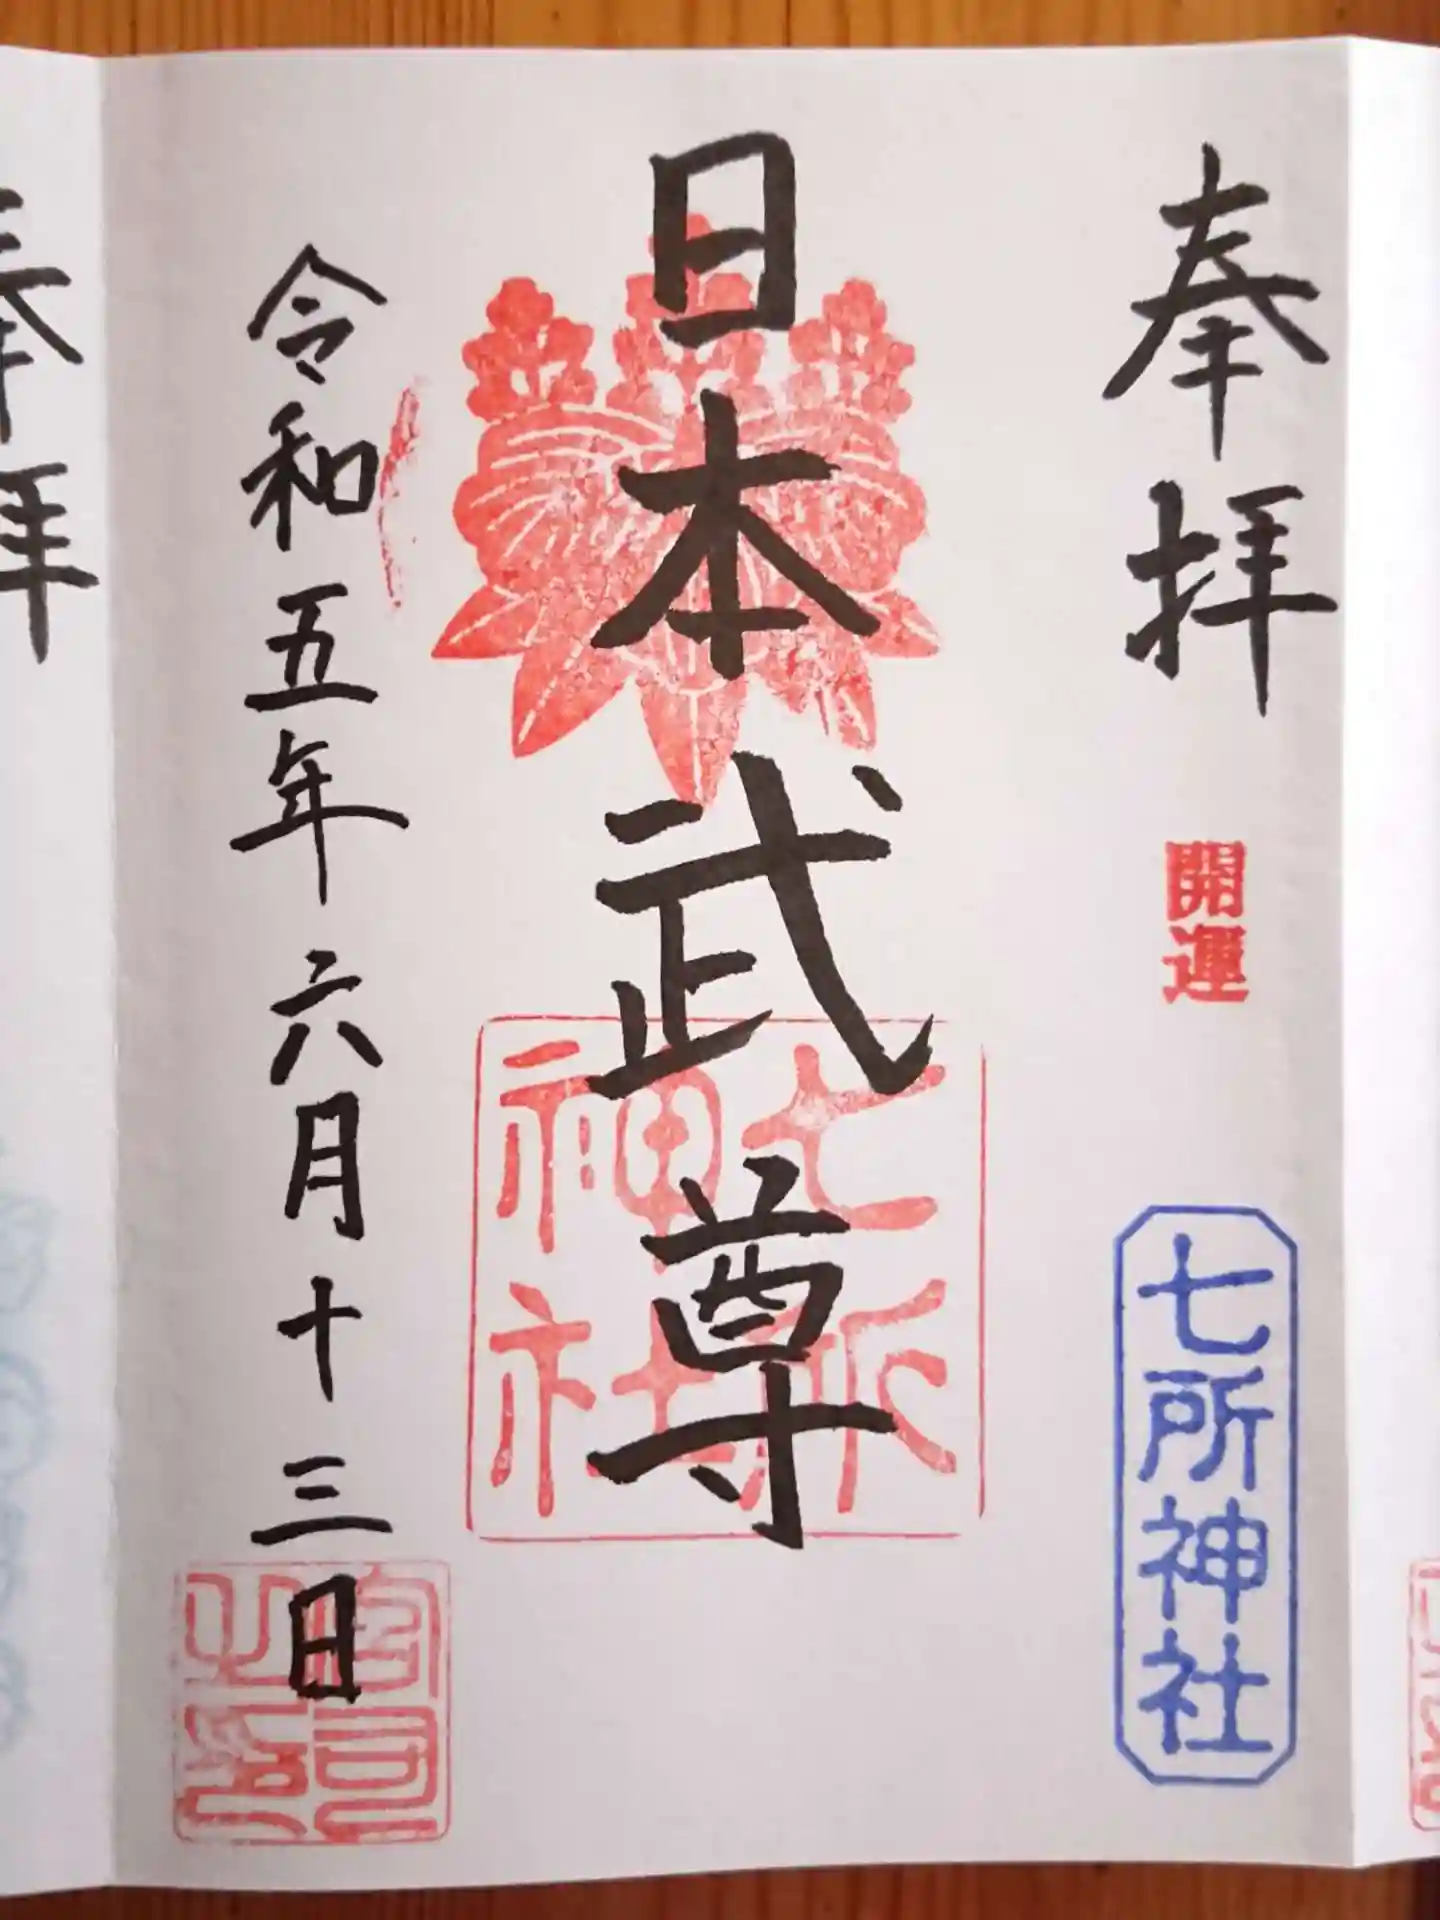 奉拝
開運
七所神社
日本武尊
七所神社
令和五年六月十三日
宮司之印
奉拝